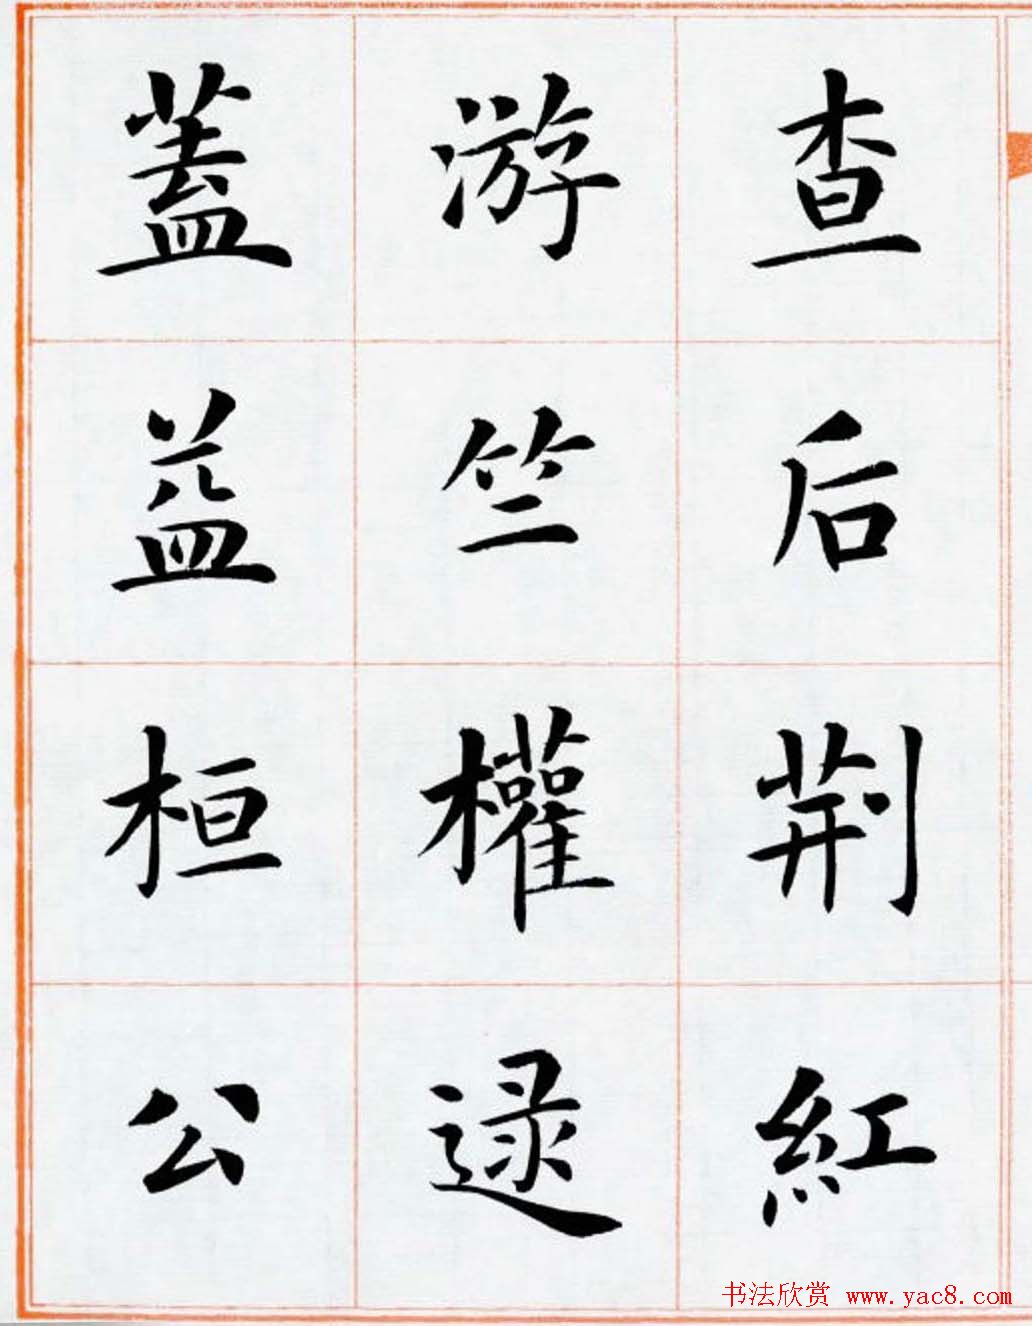 查后荊紅
游竺權逯
蓋益桓公
书法欣赏 www.yac8.com